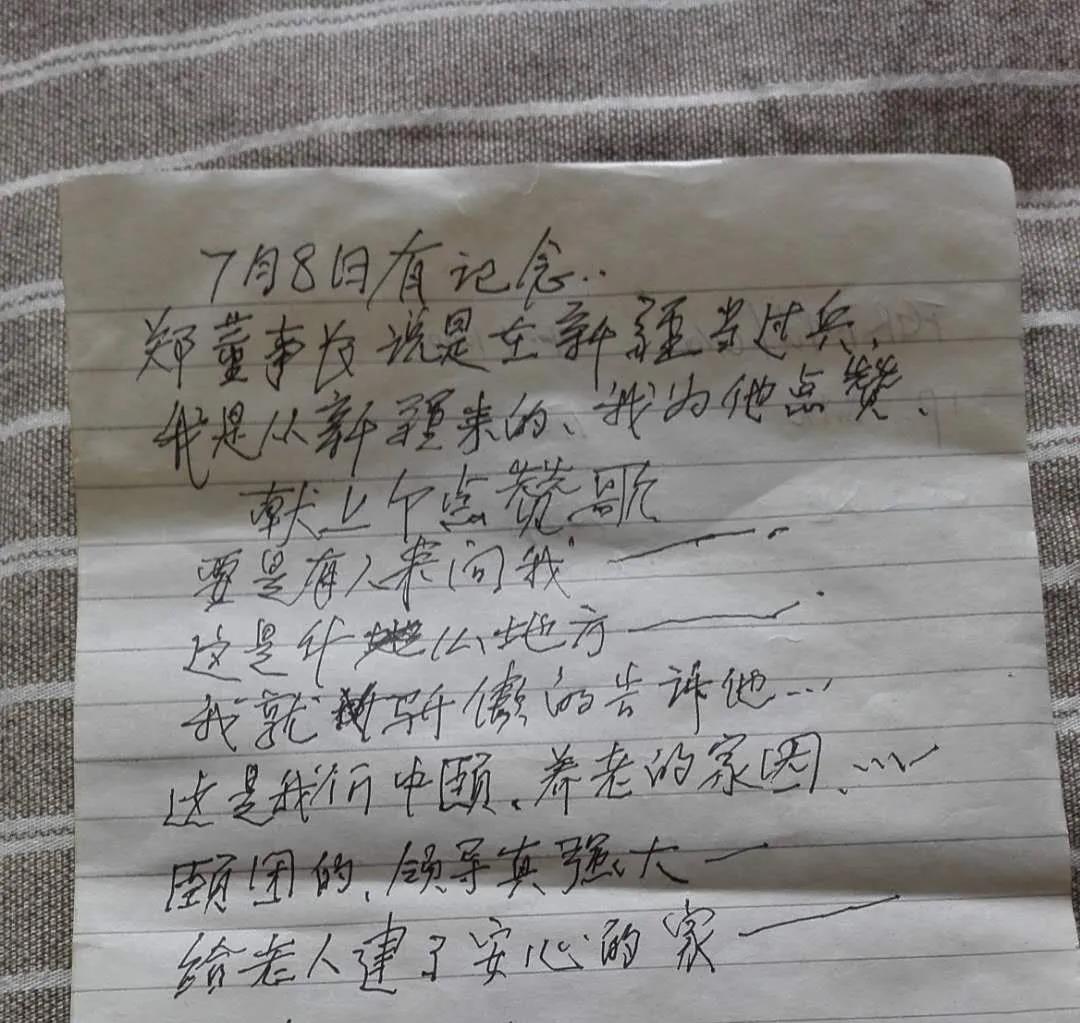 7月8日有记念..
郑董事长说是在新疆当过兵,
我是从新疆来的、我为他点赞、
献上个点赞歌
要是有人来问我
这是什么地方
我就 的告诉他...
这是我们中颐、养老的家园、...
颐园的、领导真强大
给老人建了安心的家